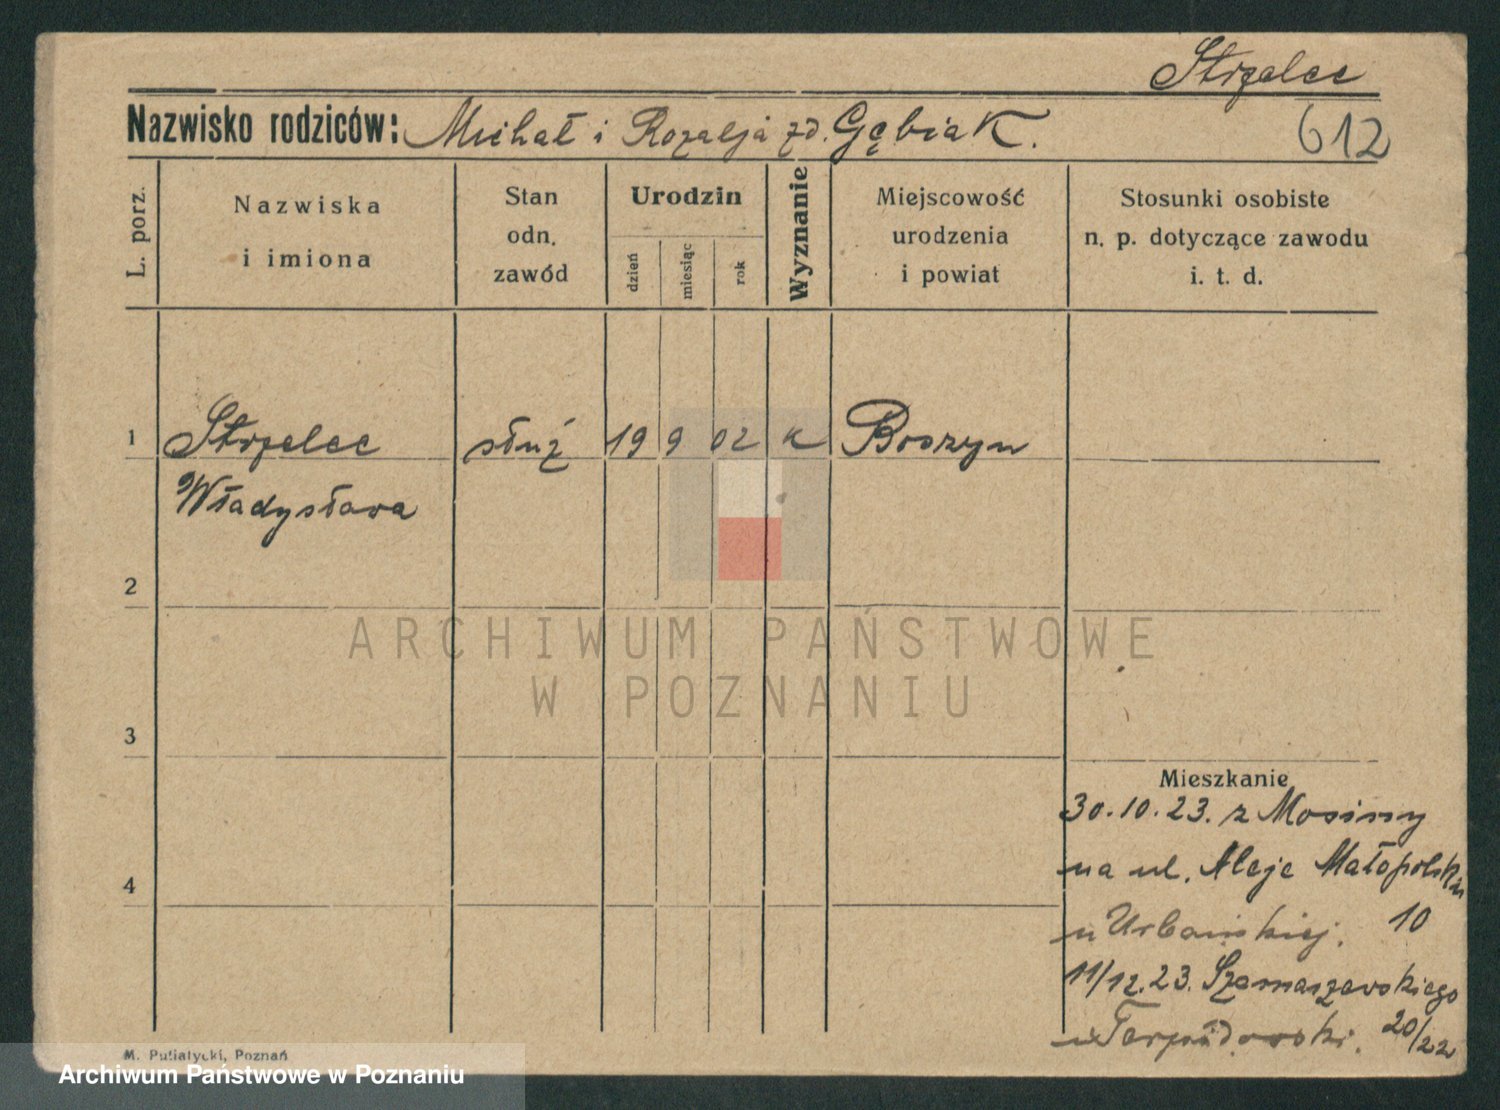 Strzelec
Nazwisko rodziców: Michał i Rozalja zd. Gębiak.
612
L. porz.
Nazwiska
i imiona
Stan
odn.
zawód
Urodzin
dzień
miesiąc
rok
Wyznanie
Miejscowość
urodzenia
i powiat
Stosunki osobiste
n. p. dotyczące zawodu
i. t. d.
1 Strzelec służ 19 9 02 k Boszyn
Władysława
2
ARCHIWUM PAŃSTWOWE
W POZNANIU
3
Mieszkanie
30.10.23. z Mosiny
na ul. Aleje Małopolskie
4
u Urbańskiej. 10
11/12.23. Szamarzewskiego
u 20/22
M. Putiatycki, Poznań
Archiwum Państwowe w Poznaniu